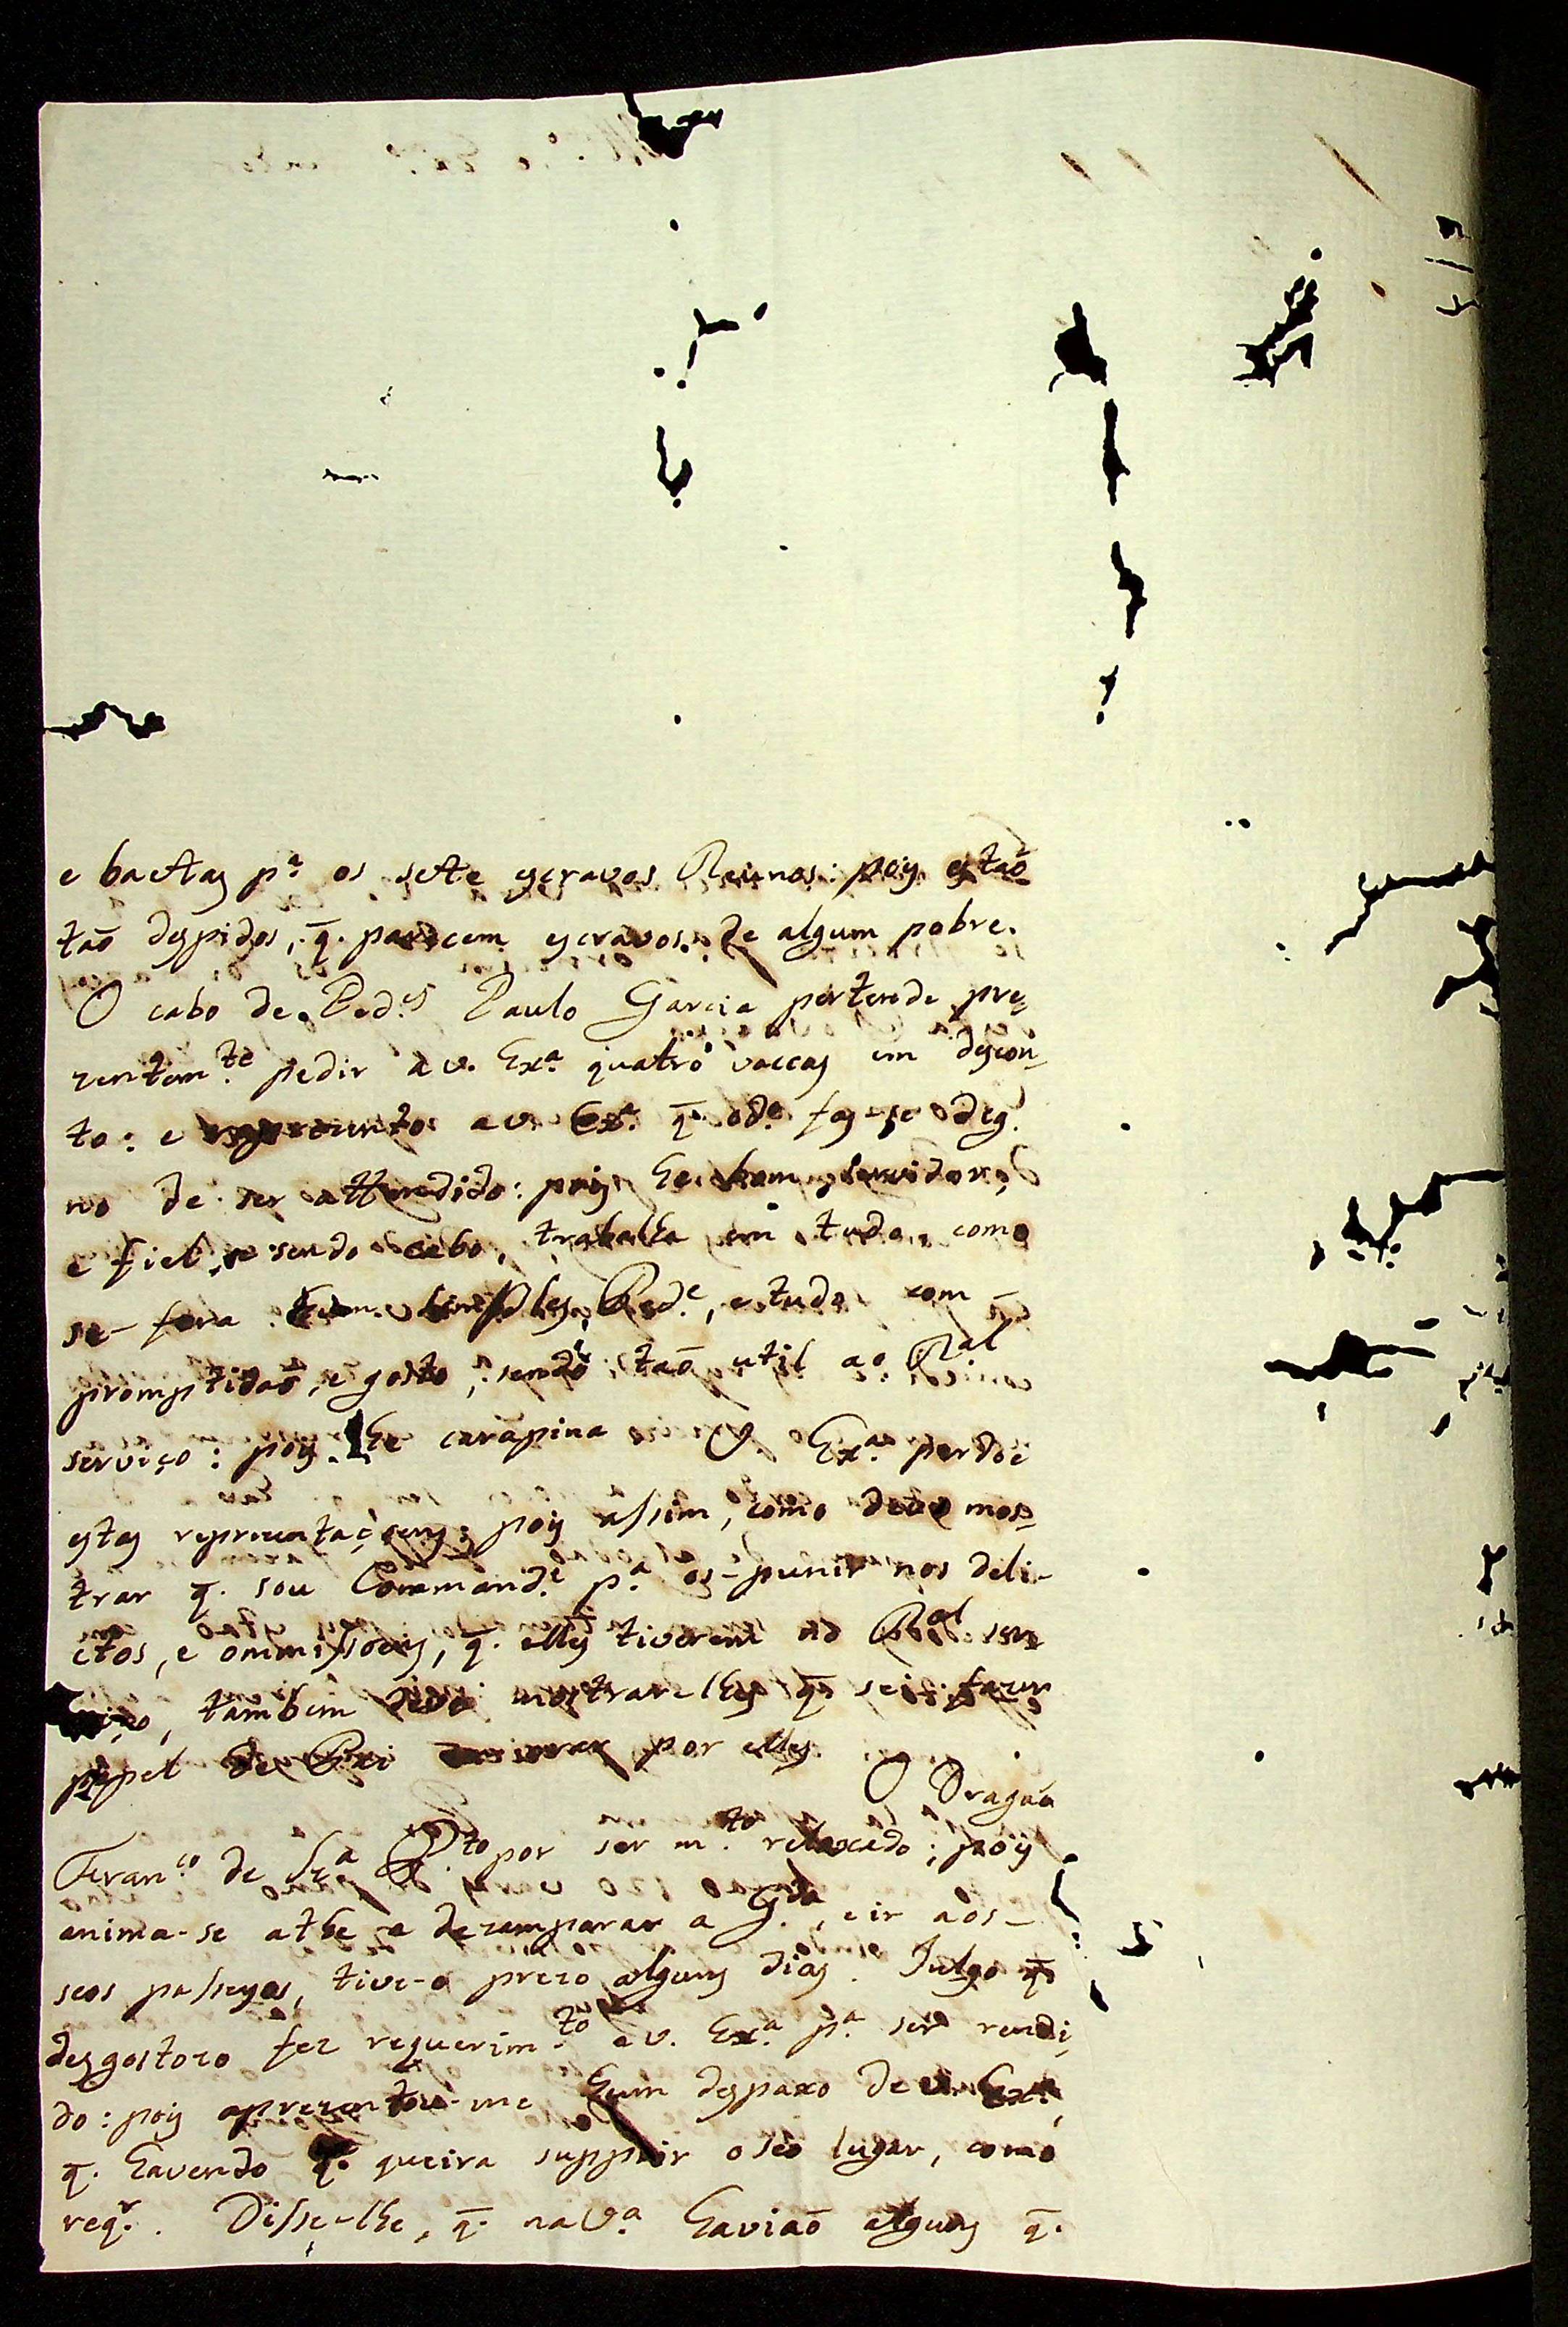 e baetas p.ª os sette escravos Reunos: pois estaõ
taõ despidos, q̃. parecem escravos de algum pobre.
O cabo de Ped.es Paulo Garcia pertende pre-
zentem.te pedir a v. Ex.ª quatro vaccas em descon-
to: e a v. Ex.ª q̃. o d.º faz-se dig-
no de ser attendido: pois he bom servidor,
e fiel, e sendo cabo, trabalha em tudo, como
se-fora hum simples Ped.e, e tudo com
promptidaõ, e gosto; sendo taõ util ao R.al
serviço: pois he carapina. V. Ex.ª perdoe
estas reprezentaçoens; pois assim, como devo mos-
trar q̃. sou Command.e p.ª os-punir nos deli-
ctos, e ommissoens, q̃. elles tiverem no R.al ser-
viço, tambem devo mostrar-lhes q̃. sei fazer
papel de Pai por elles. O Dragaõ
Fran.co de Sz.ª P.to por ser m.to relaxado; pois
anima-se athe a dezamparar a G.da, e ir aos-
seos passeyos, tive-o prezo alguns dias. Julgo q̃.
desgostozo fez requerim.to a v. Ex.ª p.ª ser rendi-
do: pois aprezentou-me hum despaxo de v. Ex.ª,
q̃. havendo q̃. queira supprir o seo lugar, como
req.r. Disse-lhe, q̃. na V.ª haviaõ alguns q̃.